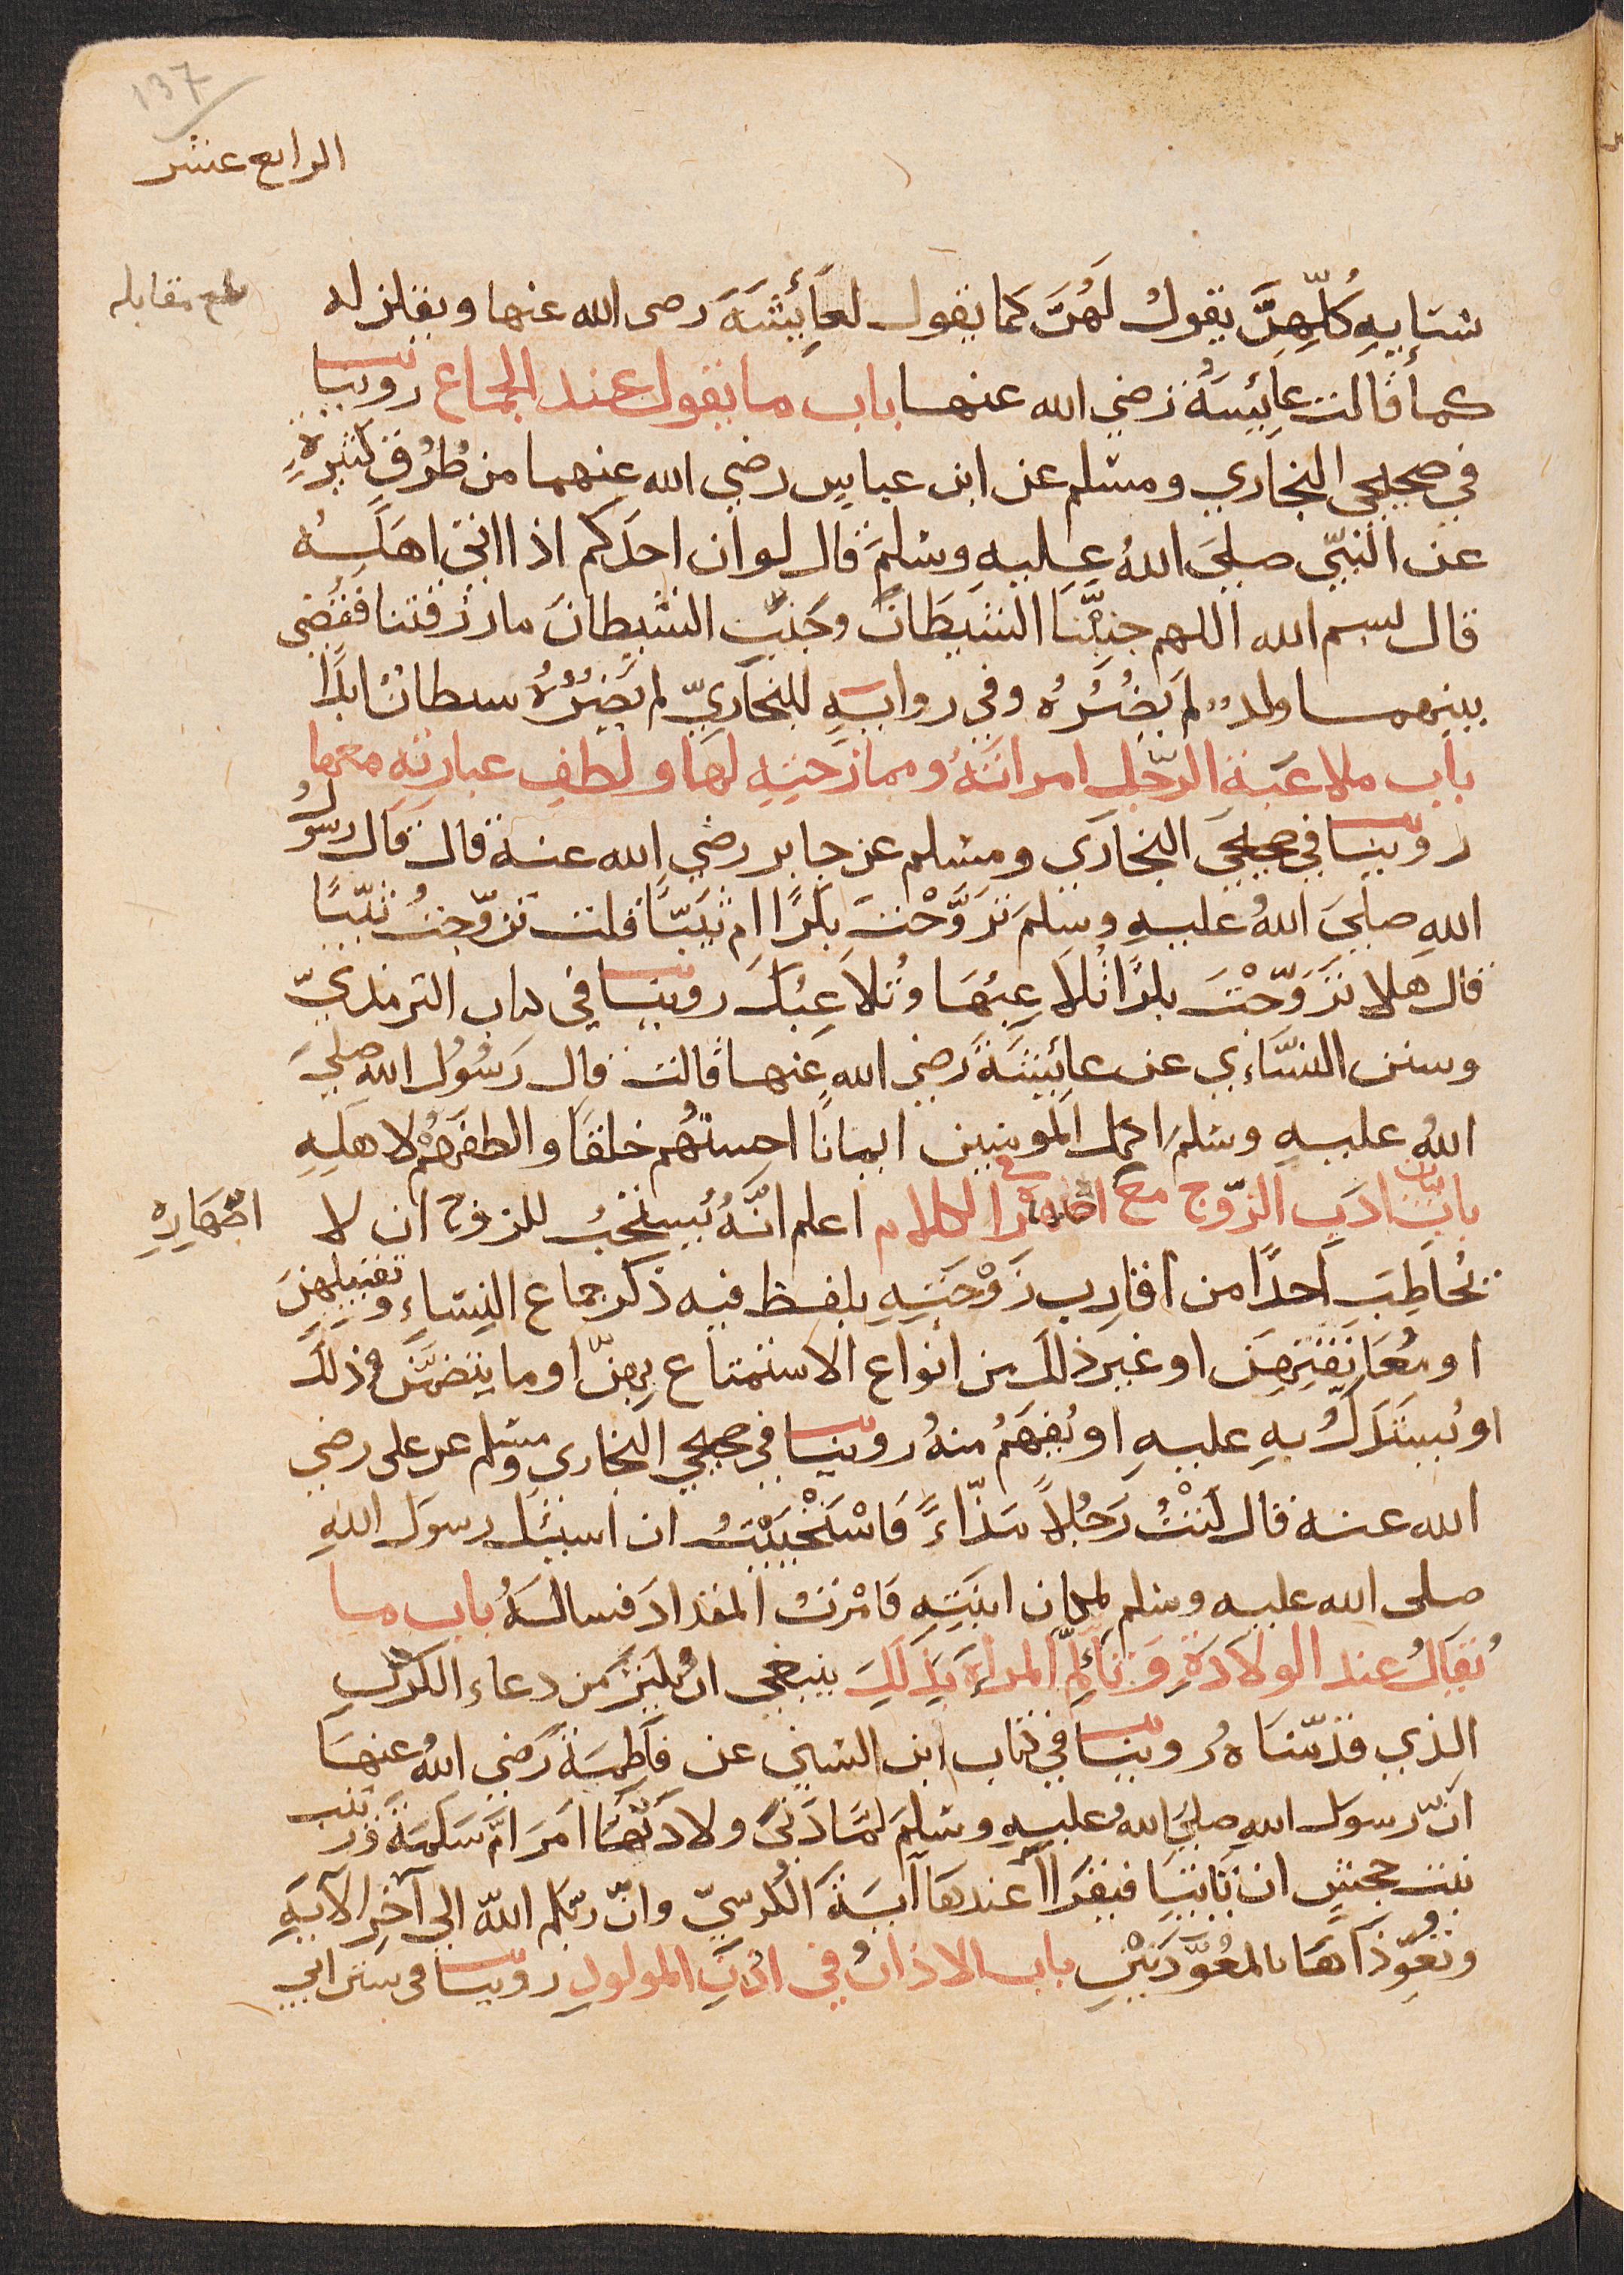 137
الرابع عشر
نسَايِهِ كُلِّهِنَّ يقولُ لَهُنَّ كما يقول لعَائِشَةَ رضى الله عنها ويقلن له
بلغ مقابله
كما قالت عائِشَةُ رضي الله عنها باب ما يقول عند الجماع روينا
في صحيحي البخاري ومسلم عن ابن عباس رضي الله عنهما من طُرُقٍ كثيرةٍ
عن النبيّ صلى اللهُ عليهِ وسلمَ قال لو ان احدَكم اذا اتى اهلَهُ
قال بسم الله اللهم جنِّبْنَا الشيطَانَ وجَنِّبِ الشيطانَ ما رزقتنا فقُضِي
بينهما ولدٌ لم يَضُرَّهُ وفي روايةٍ للبخاريّ لم يَضُرَّهُ شيطانٌ ابدًا
باب ملاعبَة الرّجل امراتَهُ وممازحتِهِ لها ولطفِ عبارتِهِ معها
روينا في صحيحي البخاري ومسلم عن جابر رضي الله عنه قال قال رسُولُ
اللهِ صلى اللهُ عليهِ وسلمَ تزوَّجْتَ بكرًا ام ثيبًا قلت تزوّجتُ ثيّبًا
قال هلا تزوّجْتَ بكرًا تُلاعِبُهَا وتُلاعِبُكَ روينا في كتاب الترمذيّ
وسنن النسَّاءي عن عائِشَةَ رضي الله عنها قالت قال رَسُولُ اللهِ صلى
اللهُ عليهِ وسلمَ اكمل المومنين ايمانًا احسنُهُم خلقًا والطفهُمْ لاهلِهِ
بابُ بيان ادَبِ الزّوج مع اصهاره في الكلام اعلم انَّهُ يُستحَبُّ للزوج ان لا
اصْهَارِهِ
يُخاطِبَ احدًا من اقارِب زَوْجَتِهِ بلفظ فيه ذكر جماع النِساءِ وتقبيلِهنَ
او مُعَانَقتِهِنَ او غير ذلك من انواع الاستمتاع بِهنّ او ما يتضمّنُ ذلكَ
او يُستَدَلُّ بهِ عليهِ او يُفهَمُ منهُ روينا في صحيحي البخاري ومسلم عن على رضي
الله عنه قال كنْتُ رَجُلاً مَذّاءً فَاسْتَحْيَيْتُ ان اسئل رسول اللهِ
صلى الله عليه وسلم لمكان ابنتِهِ فامَرْتُ المقدادَ فسالهُ باب ما
يُقالُ عند الولادَةِ وتألّمِ المراةِ بذلكَ ينبغي ان يُكثِرَ من دعاء الكربِ
الذي قدّمناهُ روينا في كتاب ابن السّني عن فاطِمَةَ رَضي اللهُ عنهَا
انّ رسول اللهِ صلى اللهُ عليهِ وسلمَ لمّا دَنَى ولادَتُهَا امَرَ امَّ سَلمَةَ وزينب
بنت جحشٍ ان تَاتيَا فيقرَاا عندهَا آيةَ الكُرسيّ وانّ ربّكم اللهُ الى آخر الآيَةِ
وتعوِّذَاهَا بالمعُوَّذَتَيْنِ باب الاذانُ في اذُنِ المولودِ روينا في سنن ابي